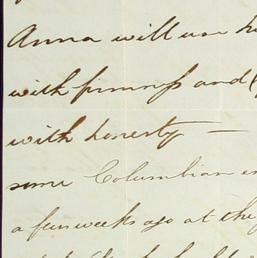 Anna will use h
with firmness and (
with honesty —
some Columbian
a few weeks ago at the